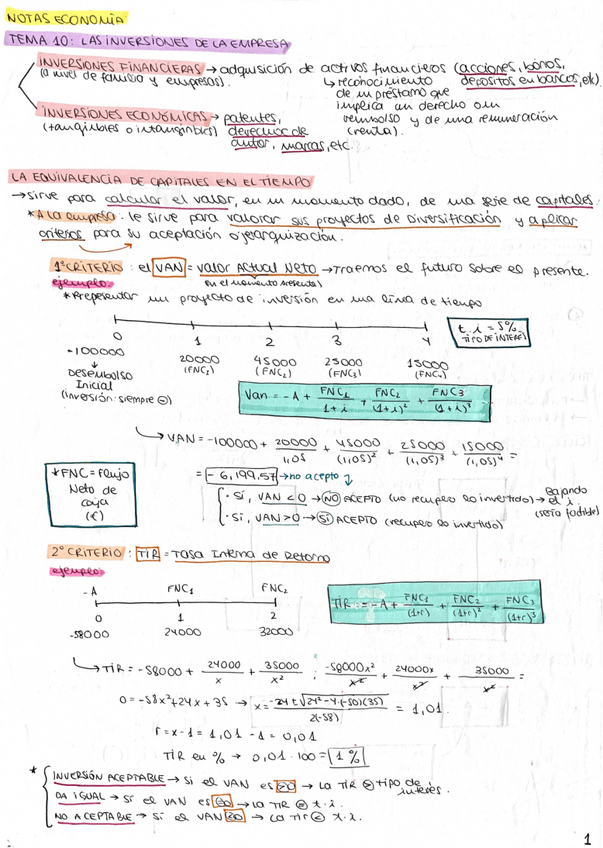 NOTAS ECONOMÍA
TEMA 10: LAS INVERSIONES DE LA EMPRESA
INVERSIONES FINANCIERAS → adquisición de activos financieros (acciones, bonos,
(a nivel de familia y empresas).
↳ reconocimiento depósitos en bancos, etc)
de un préstamo que
implica un derecho a un
reembolso y de una remuneración
(renta).
INVERSIONES ECONÓMICAS → patentes,
(tangibles o intangibles) derechos de
autor, marcas, etc.
LA EQUIVALENCIA DE CAPITALES EN EL TIEMPO
→ sirve para calcular el valor, en un momento dado, de una serie de capitales.
* A la empresa: le sirve para valorar sus proyectos de diversificación y aplicar
criterios para su aceptación o jerarquización.
1º CRITERIO: el VAN = Valor Actual Neto → Traemos el futuro sobre el presente.
(en el momento presente)
ejemplo:
* Representar un proyecto de inversión en una línea de tiempo
t.i = 5%
TIPO DE INTERÉS
0 1 2 3 4
-100000 20000 45000 25000 15000
(FNC1) (FNC2) (FNC3) (FNC4)
↓
Desembolso
Inicial
(inversión: siempre ⊖)
Van = -A + FNC1/1+i + FNC2/(1+i)² + FNC3/(1+i)³
↳ VAN = -100000 + 20000/1,05 + 45000/(1,05)² + 25000/(1,05)³ + 15000/(1,05)⁴ =
= -6,199.57 → no acepto ↓
* FNC = Flujo
Neto de
caja
(€)
· Si, VAN < 0 → NO ACEPTO (no recupero lo invertido) → Bajando
el i.
(sería factible)
· Si, VAN > 0 → SI ACEPTO (recupero lo invertido)
2º CRITERIO: TIR = Tasa Interna de Retorno
ejemplo:
-A FNC1 FNC2
0 1 2
-58000 24000 32000
TIR = -A + FNC1/(1+r) + FNC2/(1+r)² + FNC3/(1+r)³
↳ TIR = -58000 + 24000/x + 35000/x² ; -58000x²/x² + 24000x/x² + 35000/x² =
0 = -58x² + 24x + 35 → x = -24 ± √24² - 4·(-50)(35) / 2(-58) = 1,01.
r = x - 1 = 1,01 - 1 = 0,01
TIR en % → 0,01 · 100 = 1 %
* INVERSIÓN ACEPTABLE → Si el VAN es >0 → la TIR > tipo de
interés.
DA IGUAL → Si el VAN es =0 → la TIR = t.i.
NO ACEPTABLE → Si el VAN <0 → La TIR < t.i.
1